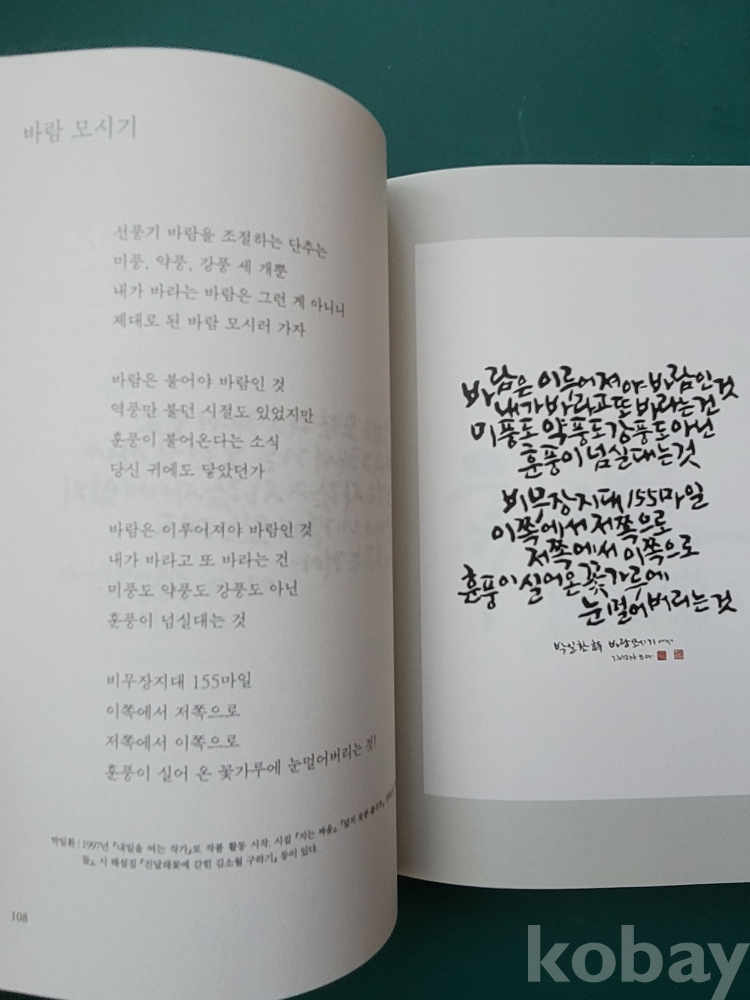 바람 모시기
선풍기 바람을 조절하는 단추는
미풍, 약풍, 강풍 세 개뿐
내가 바라는 바람은 그런 게 아니니
제대로 된 바람 모시러 가자
바람은 불어야 바람인 것
역풍만 불던 시절도 있었지만
훈풍이 불어온다는 소식
당신 귀에도 닿았던가
바람은 이루어져야 바람인 것
내가 바라고 또 바라는 건
미풍도 약풍도 강풍도 아닌
훈풍이 넘실대는 것
비무장지대 155마일
이쪽에서 저쪽으로
저쪽에서 이쪽으로
훈풍이 실어 온 꽃가루에 눈멀어버리는 것!
박일환 | 1997년 『내일을 여는 작가』로 작품 활동 시작. 시집 『지는 싸움』, 『덮지 못한
들』, 시 해설집 『진달래꽃에 갇힌 김소월 구하기』 등이 있다.
108
바람은 이루어져야 바람인 것
내가 바라고 또 바라는 건
미풍도 약풍도 강풍도 아닌
훈풍이 넘실대는 것
비무장지대 155마일
이쪽에서 저쪽으로
저쪽에서 이쪽으로
훈풍이 실어 온 꽃가루에
눈멀어버리는 것
박일환 詩 바람모시기에서
kobay